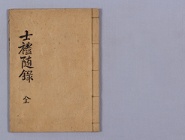 士禮随錄
全